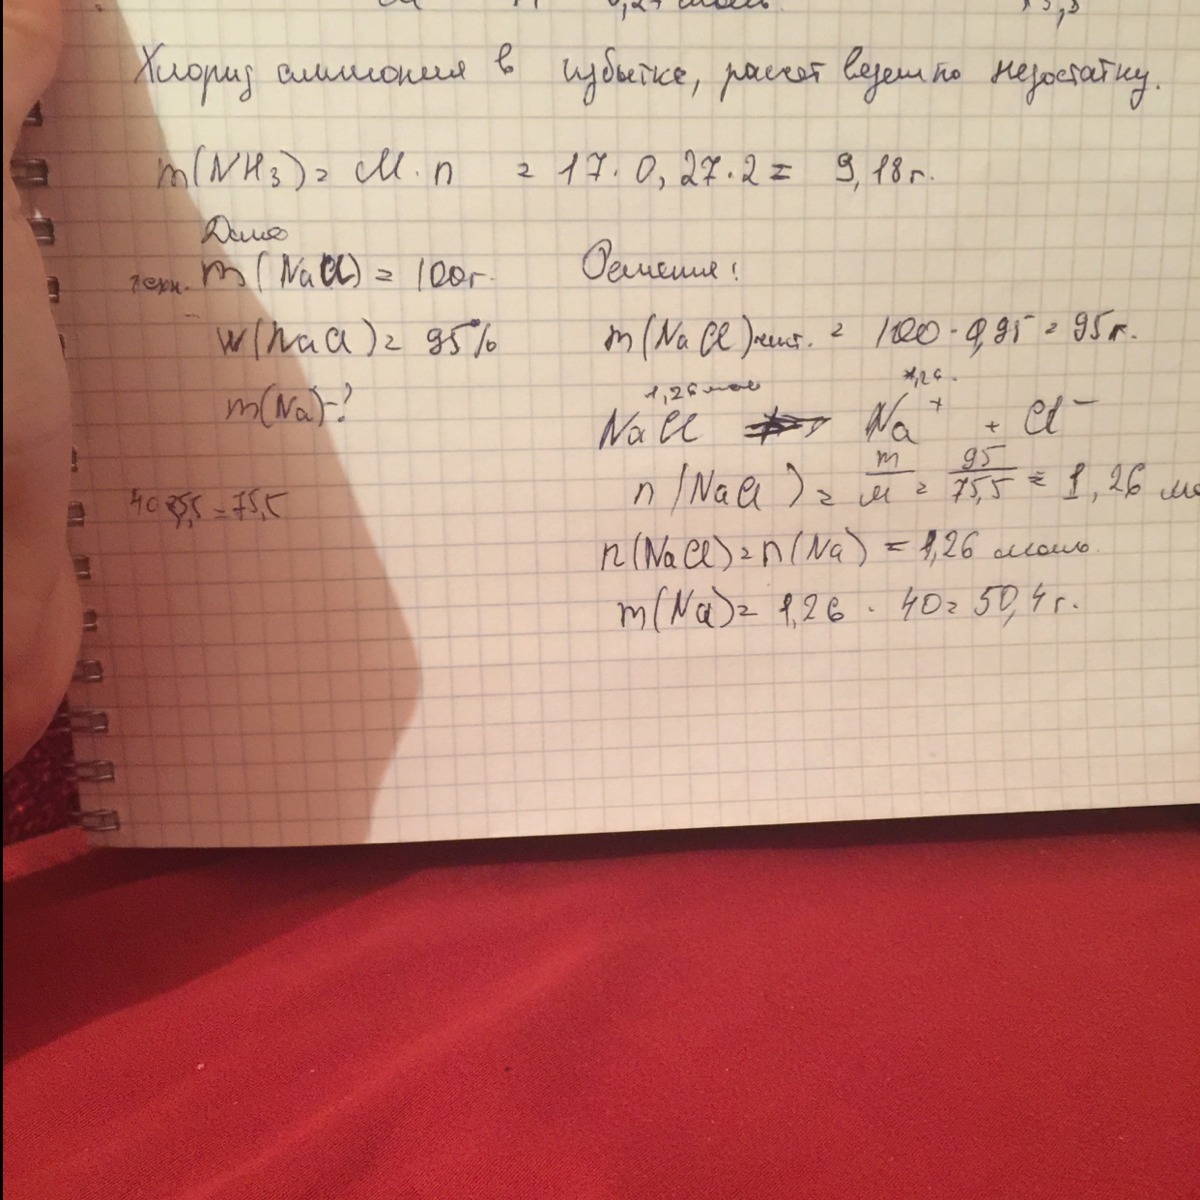 0,27 моль.
Хлорид аммония в избытке, расчет ведем по недостатку.
m(NH₃) = M · n = 17 · 0,27 · 2 = 9,18 г.
Дано
техн. m(NaCl) = 100 г.
Решение:
w(NaCl) = 95%
m(NaCl)чист. = 100 · 0,95 = 95 г.
m(Na)-?
1,26 моль 1,26.
NaCl → Na⁺ + Cl⁻
n(NaCl) = m/M = 95/75,5 = 1,26 мо
40 35,5 = 75,5
n(NaCl) = n(Na) = 1,26 моль.
m(Na) = 1,26 · 40 = 50,4 г.